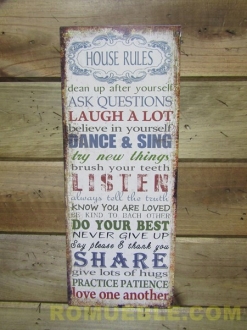 HOUSE RULES
clean up after yourself
ASK QUESTIONS
LAUGH A LOT
believe in yourself
DANCE & SING
try new things
brush your teeth
LISTEN
always tell the truth
KNOW YOU ARE LOVED
BE KIND TO EACH OTHER
DO YOUR BEST
NEVER GIVE UP
Say please & thank you
SHARE
give lots of hugs
PRACTICE PATIENCE
love one another
ROMUEBLE.COM